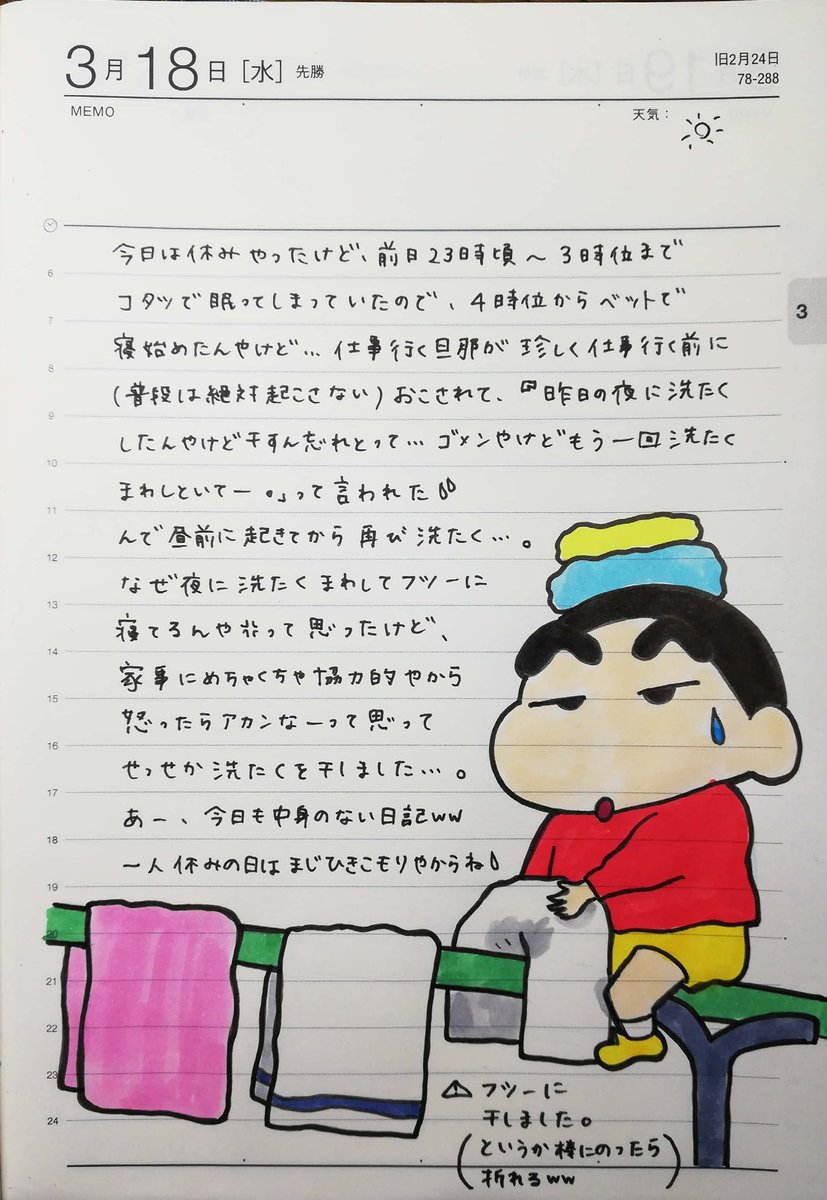 3月18日［水］先勝
旧2月24日
78-288
MEMO
天気：
3
6
7
8
9
10
11
12
13
14
15
16
17
18
19
20
21
22
23
24
今日は休みやったけど、前日23時頃～3時位まで
コタツで眠ってしまっていたので、4時位からベットで
寝始めたんやけど…仕事行く旦那が珍しく仕事行く前に
(普段は絶対起こさない)おこされて、『昨日の夜に洗たく
したんやけど干すん忘れとって…ゴメンやけどもう一回洗たく
まわしといてー。』って言われた
んで昼前に起きてから再び洗たく…。
なぜ夜に洗たくまわしてフツーに
寝てろんや的って思ったけど、
家事にめちゃくちゃ協力的やから
怒ったらアカンなーって思って
せっせか洗たくを干しました…。
あー、今日も中身のない日記ww
一人休みの日はまじひきこもりやからね
⚠フツーに
干しました。
(というか棒にのったら
折れるww)